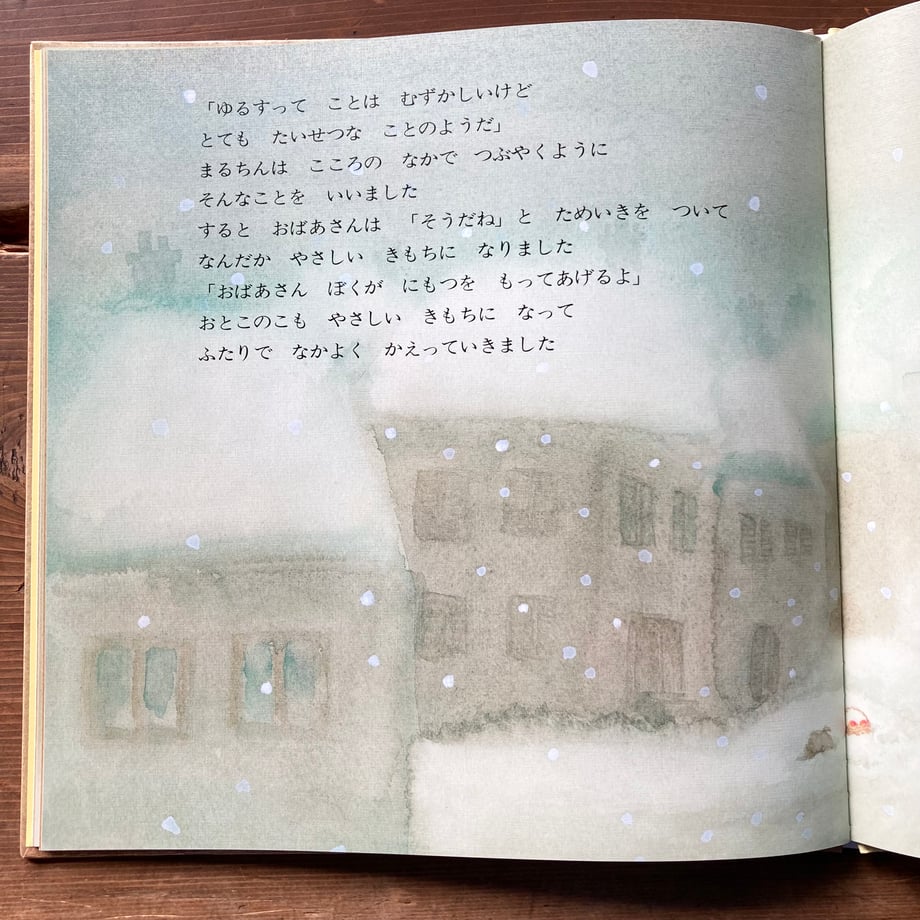 「ゆるすって　ことは　むずかしいけど
とても　たいせつな　ことのようだ」
まるちんは　こころの　なかで　つぶやくように
そんなことを　いいました
すると　おばあさんは　「そうだね」と　ためいきを　ついて
なんだか　やさしい　きもちに　なりました
「おばあさん　ぼくが　にもつを　もってあげるよ」
おとこのこも　やさしい　きもちに　なって
ふたりで　なかよく　かえっていきました